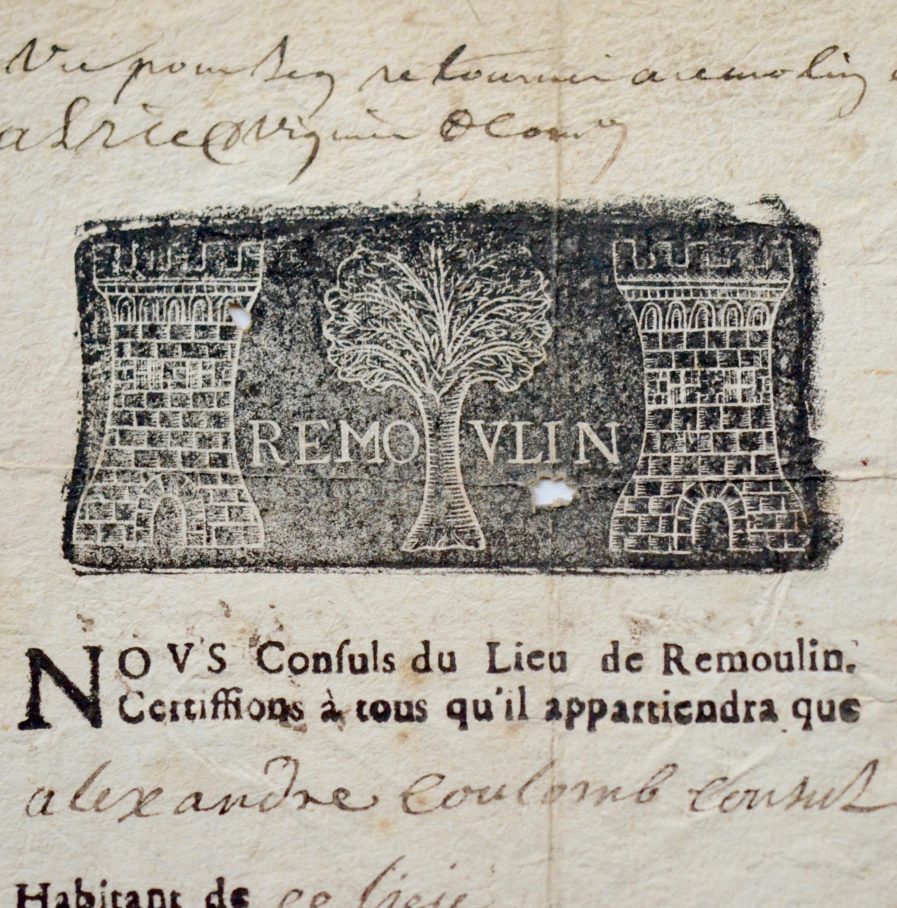 Veu pour sen retourner a remolin
REMO VLIN
NOVS Conſuls du Lieu de Remoulin.
Certiffions à tous qu'il appartiendra que
alexandre coulomb consul
Habitant de ce lieu